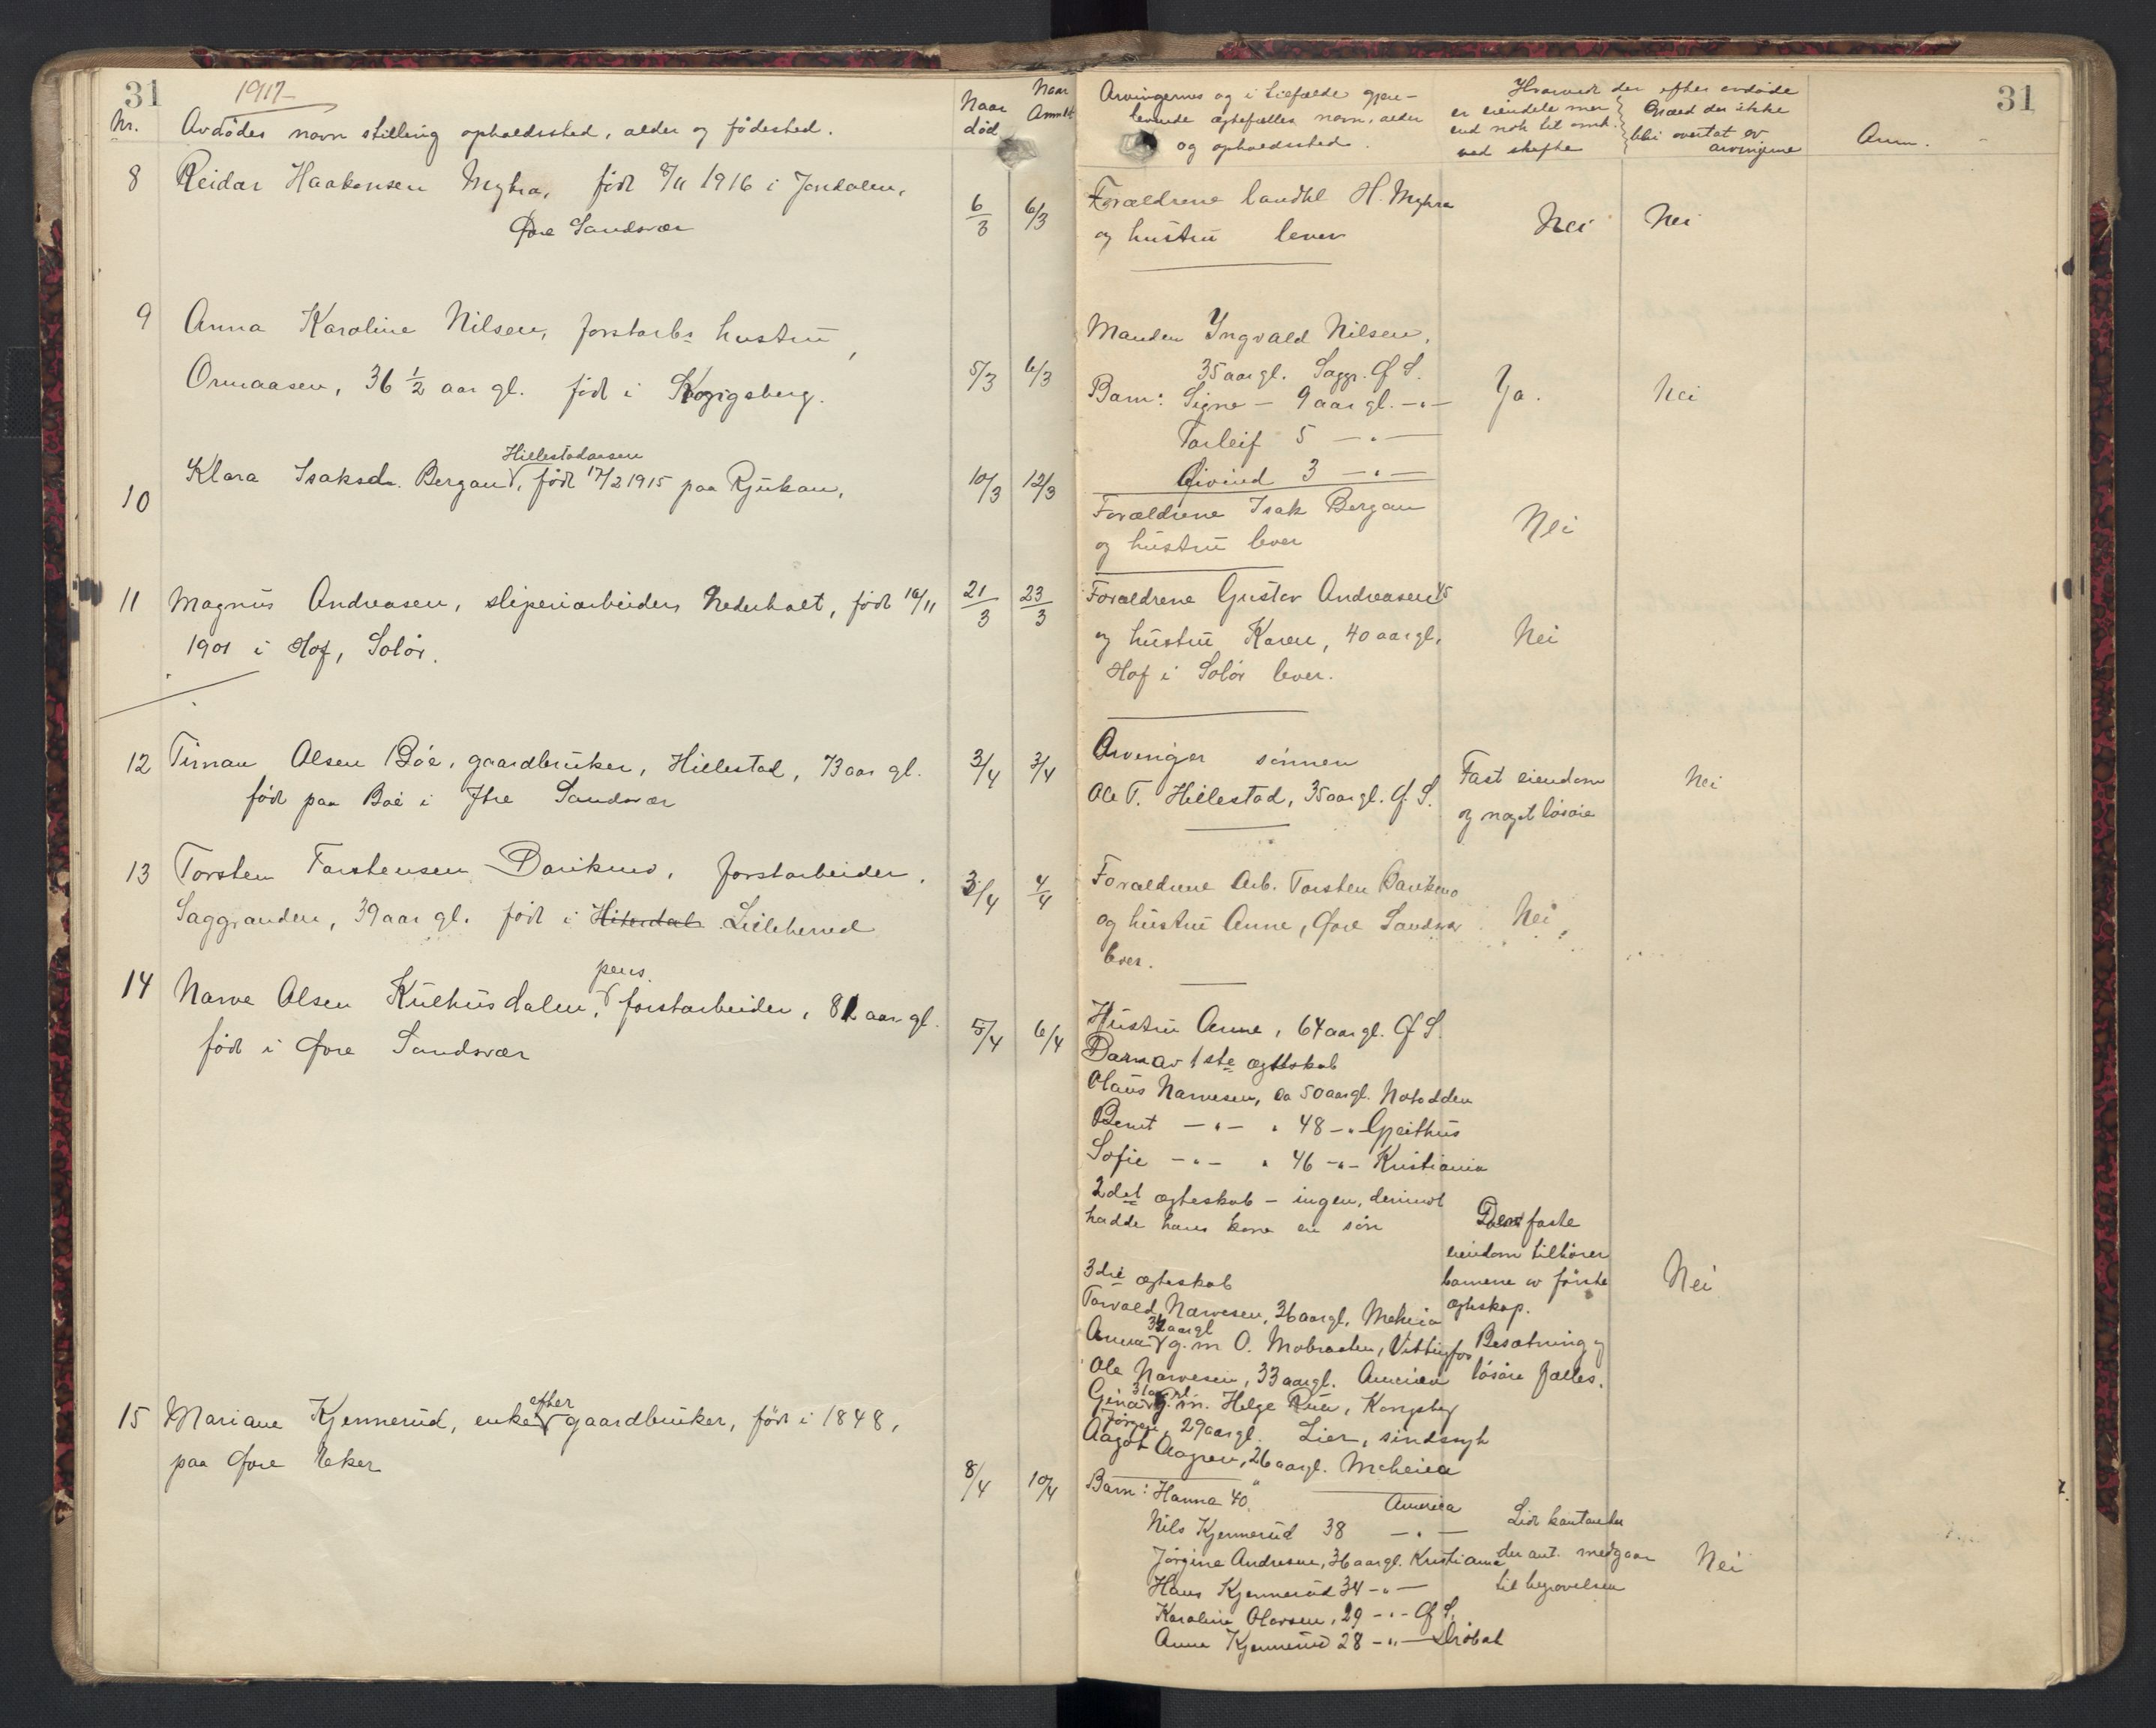 31
1917
Nr.
Avdödes navn stilling opholdssted, alder og födested.
Naar död
Naar Anmeldt
8 Reidar Haakonsen Myhra, född 8/11 1916 i Jondalen,
Øvre Sandsvær
6/3 6/3
9 Anna Karoline Nilsen, forstarb. hustru,
Ormaasen, 36 1/2 aar gl. född i Kongsberg.
5/3 6/3
Hillestadaasen
10 Klara Isaksd. Bergan, född 17/2 1915 paa Rjukan,
10/3 12/3
11 Magnus Andreasen, sliperiarbeider, født 16/11
1901 i Hof, Solör.
21/3 23/3
12 Timan Olsen Böe, gaardbruker, Hillestad, 73 aar gl.
født paa Böe i Ytre Sandsvær
3/4 3/4
13 Torsten Torstensen, forstarbeider,
Saggranden, 39 aar gl. född i Hiterdal Lilleherred
3/4 4/4
pens.
14 Narve Olsen Kulhusdalen, forstarbeider, 81 aar gl.
född i Øvre Sandsvær
5/4 6/4
efter
15 Mariane Kjennerud, enke gaardbruker, född i 1848,
paa Øvre Eker
8/4 10/4
31
Arvingernes og i tilfælde gjen-
levende ægtefælles navn, alder
og opholdssted.
Hvorvidt der efter avdöde
er eiendele mer
end nok til omk.
ved skifte
Gjæld der ikke
blir overtat av
arvingerne
Anm.
Forældrene landhl H. Myhra
og hustru lever
Nei Nei
Manden Yngvald Nilsen,
35 aar gl. Saggr. Ø. S.
Barn: Signe – 9 aar gl. -"-
Torleif 5 -"-
Øivind 3 -"-
Ja. Nei
Forældrene Isak Bergan
og hustru lever
Nei
Forældrene Gustav Andreasen 45
og hustru Karen, 40 aar gl.
Hof i Solör lever.
Nei
Arvinger sönnen
Ole T. Hillestad, 35 aar gl. Ø. S.
Fast eiendom
og noget lösöre
Nei
Forældrene Arb. Torsten
og hustru Anne, Øvre Sandsvær
lever.
Nei
Hustru Anne, 64 aar gl. Ø S.
Barn av 1ste ægteskab
Olaus Narvesen, ca 50 aar gl. Notodden
Bernt -"- " 48 -"- Gjeithus
Sofie -"- " 46 -"- Kristiania
2det ægteskab – ingen, derimot
hadde hans kone en sön
3die ægteskab
Torvald Narvesen, 36 aar gl. Meheia
34 aar gl
Anna g. m O. Mobraaten, Vittingfos
Ole Narvesen, 33 aar gl. America
31 aar gl.
Gina g. m. Helge Rua, Kongsberg
Jörgen, 29 aar gl. Lier, sindssyk
Aagot Aagren, 26 aar gl. Meheia
Den faste
eiendom tilhörer
barnene av förste
ægteskap.
Besætning og
lösöre fælles.
Nei
Barn: Hanna 40 America
Nils Kjennerud 38 -"-
Jörgine Andresen, 36 aar gl. Kristiania
Hans Kjennerud 34 -"-
Karoline Olavsen, 29 -"- Ø S.
Anna Kjennerud 28 -"- Dröbak
Lidt kontanter
der ant. medgaar
til begravelsen
Nei